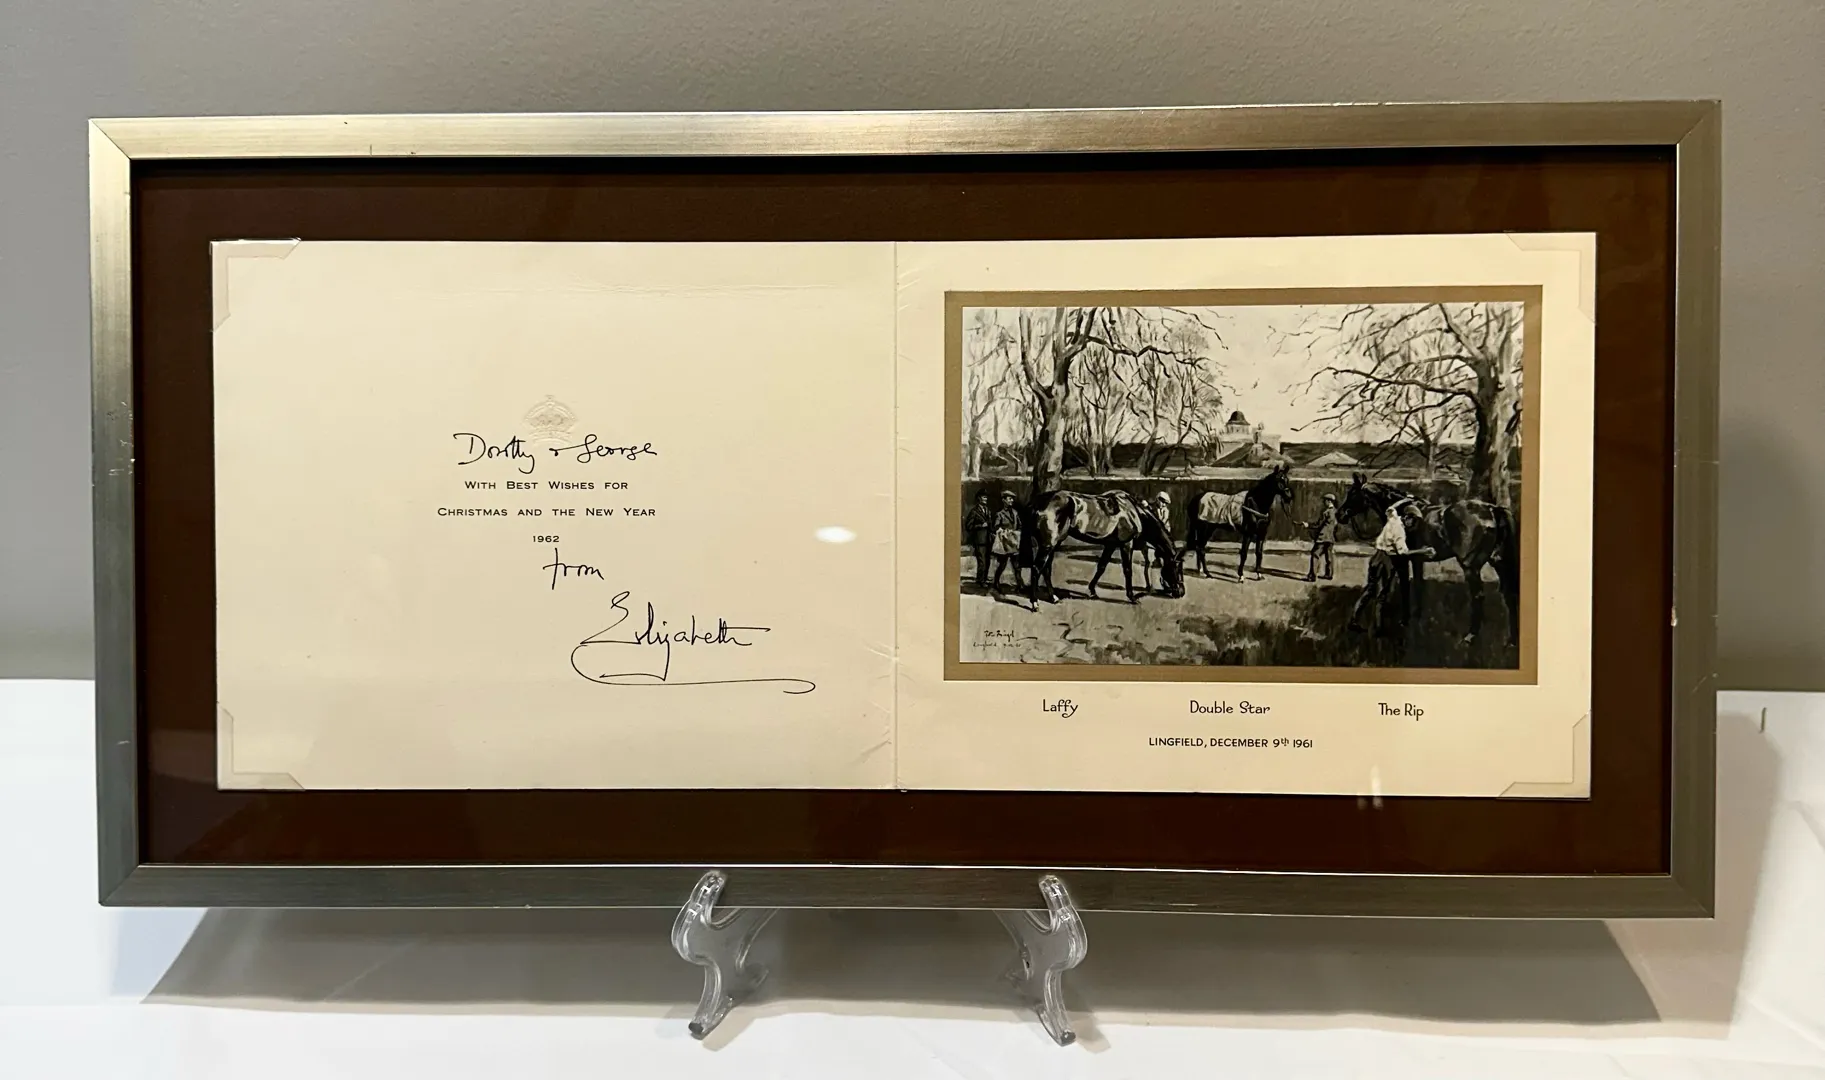 Dorothy & George
WITH BEST WISHES FOR
CHRISTMAS AND THE NEW YEAR
1962
from
Elizabeth
Laffy Double Star The Rip
LINGFIELD, DECEMBER 9th 1961